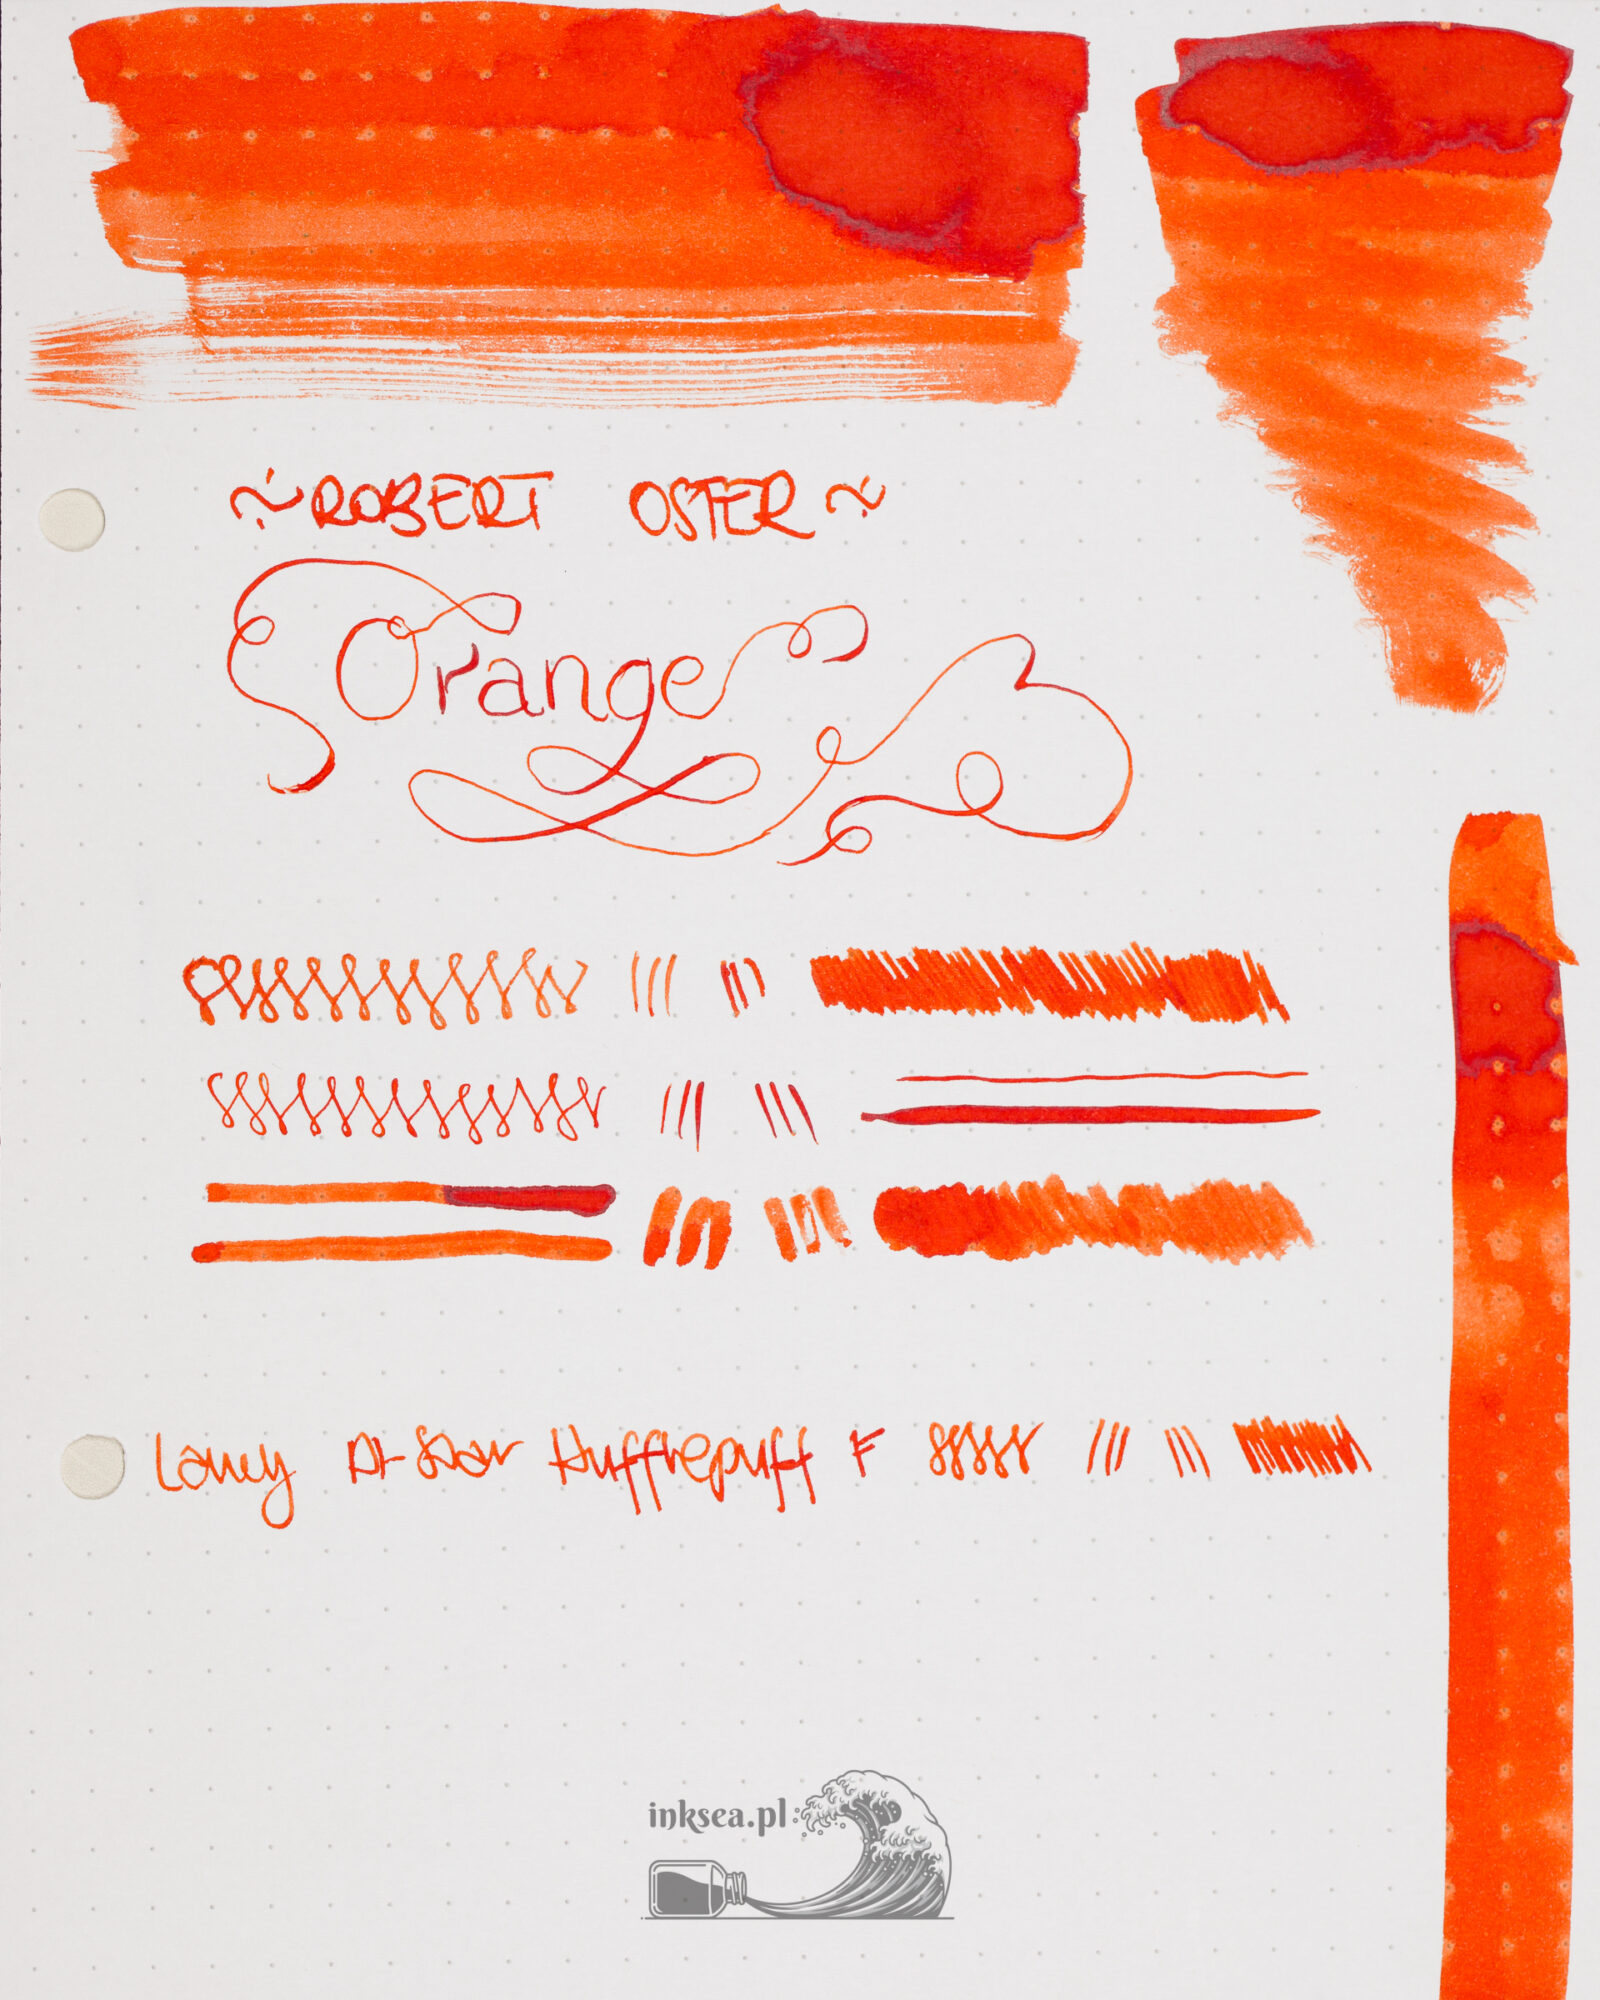 ~ROBERT OSTER~
Orange
Lamy Al-Star Hufflepuff F
inksea.pl